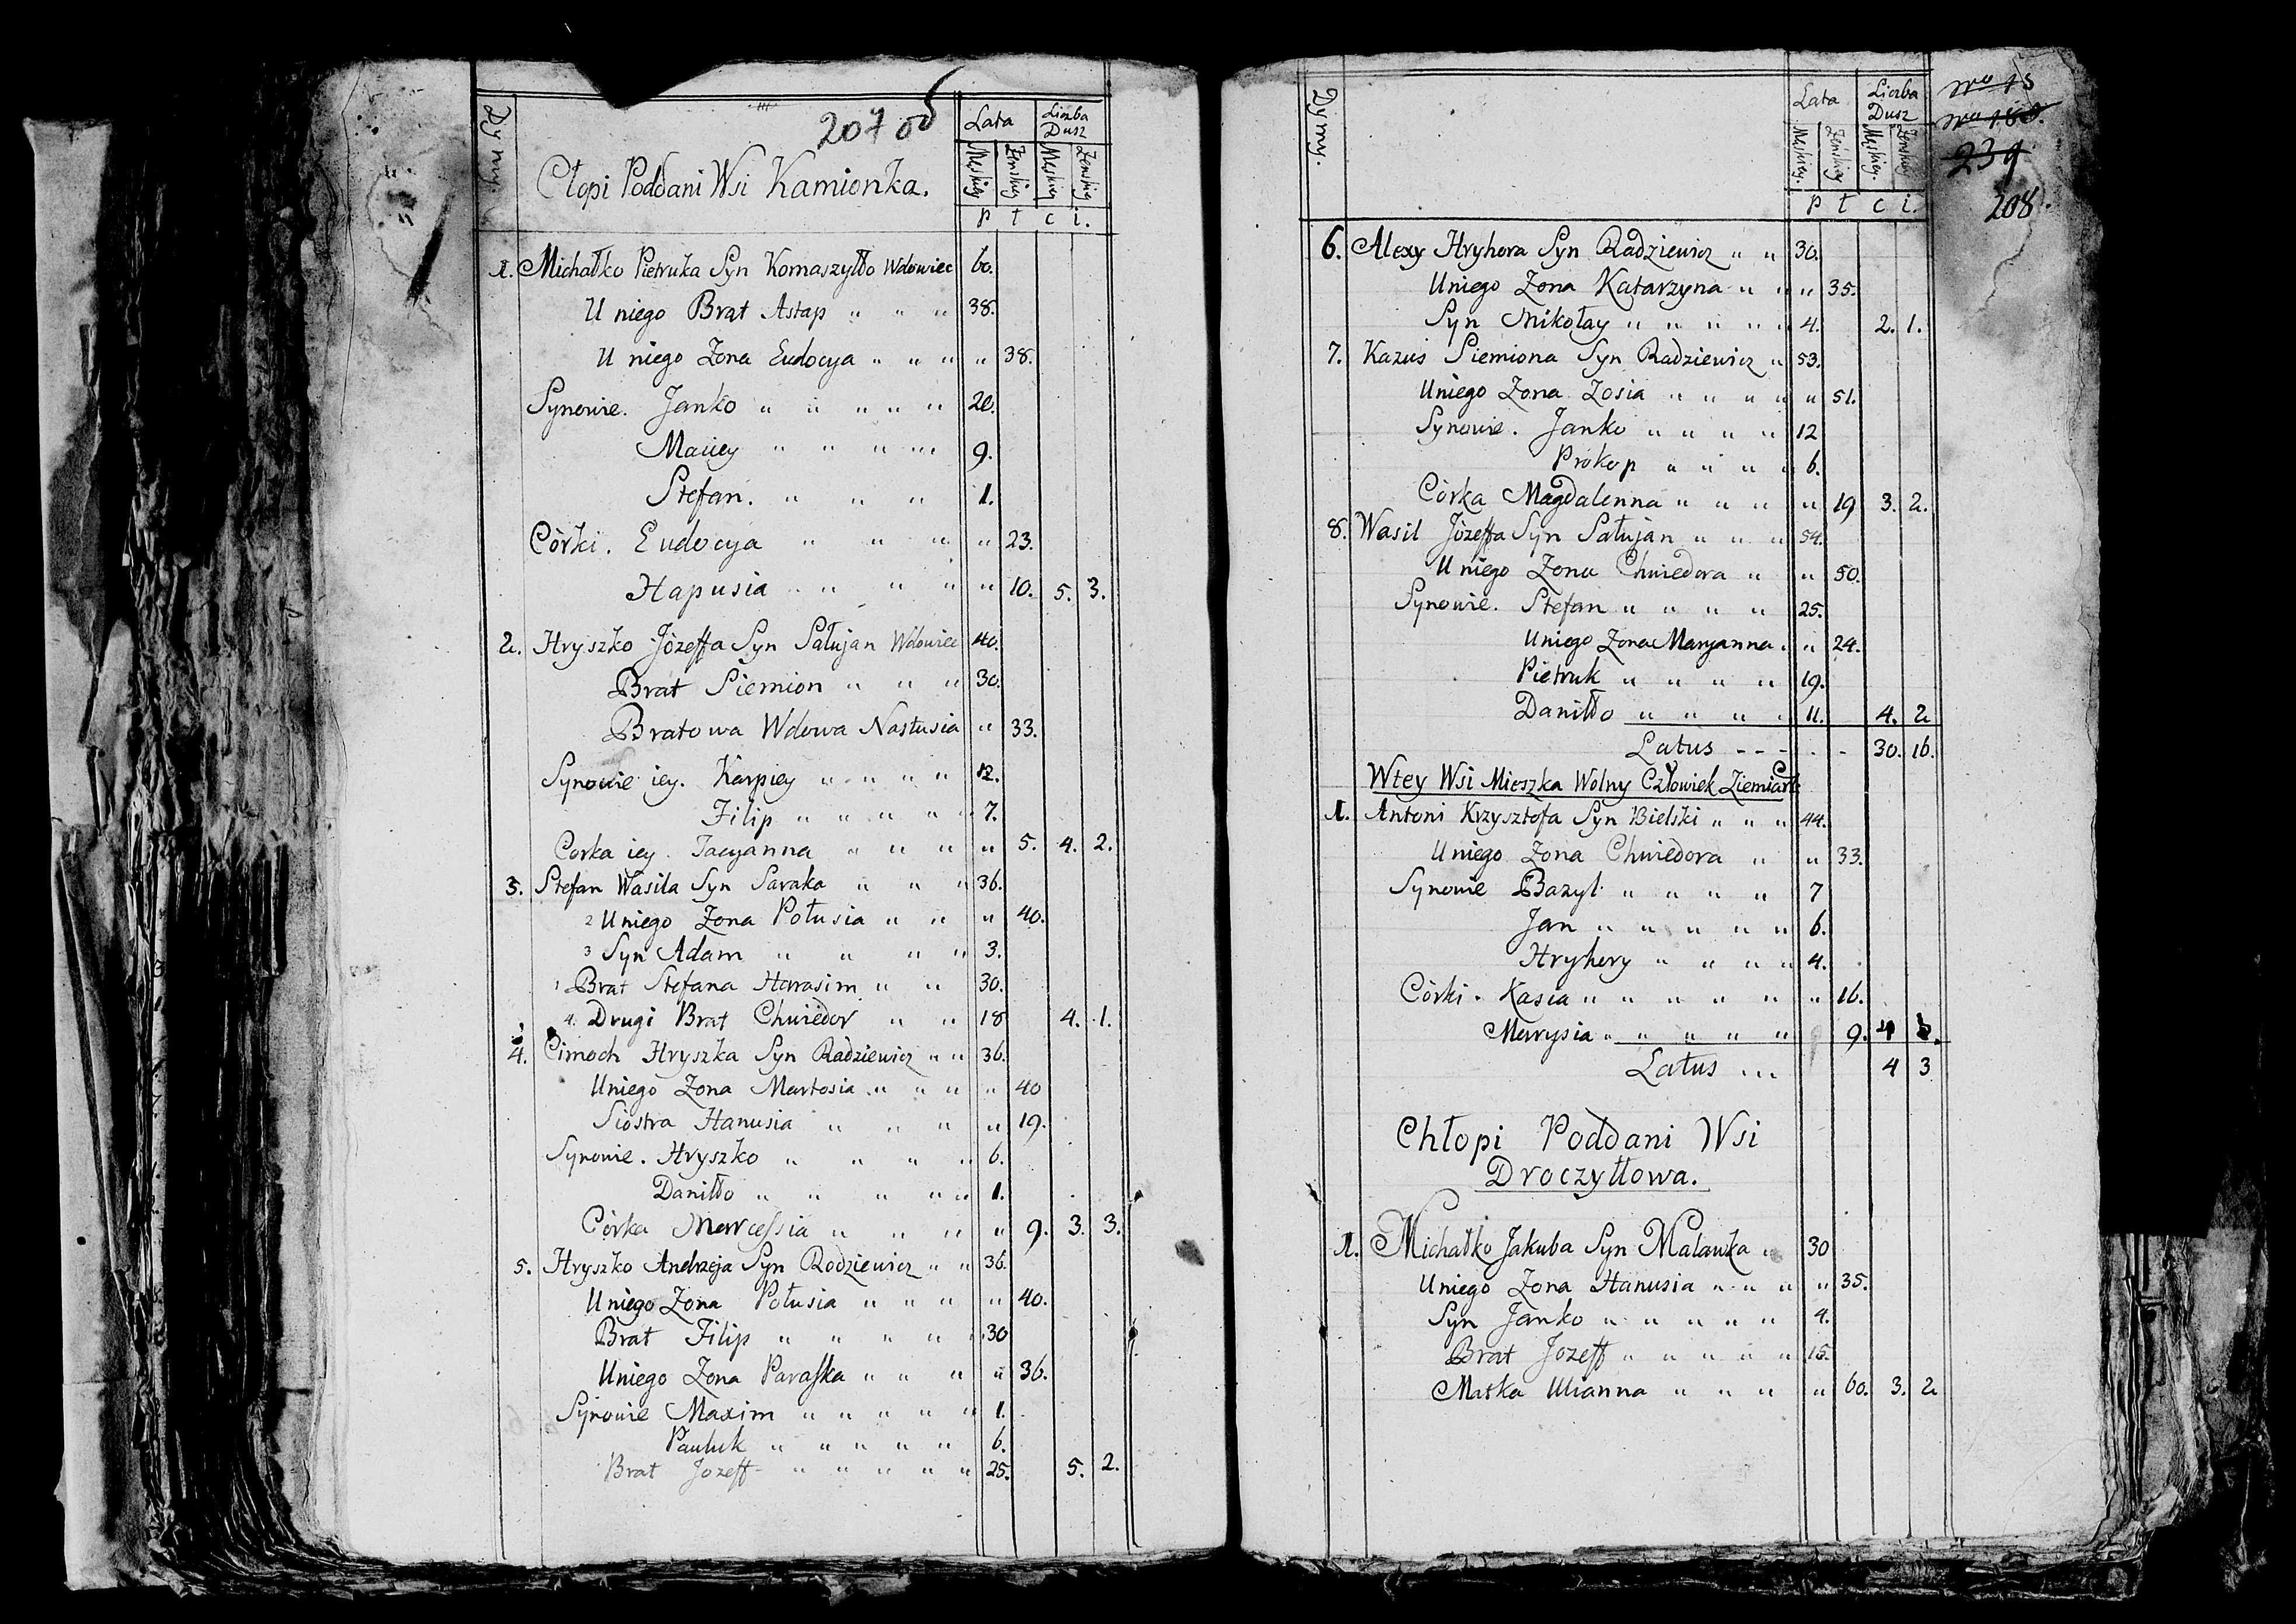 207 об
Dymy
Lata
Liczba Dusz
Męskiey Żenskiey Męskiey Żenskiey
p t c i.
Cłopi Poddani Wsi Kamionka.
1. Michałko Pietruka Syn Komaszyłło Wdowiec 60.
U niego Brat Astap " " " 38.
U niego Zona Eudocya " " " " 38.
Synowie. Janko " " " " " 20.
Maciey " " " " " 9.
Stefan. " " " 1.
Còrki. Eudocya " " " " 23.
Hapusia " " " " " 10. 5. 3.
2. Hryszko Józeffa Syn Sałujan Wdowiec 40.
Brat Siemion " " " 30.
Bratowa Wdowa Nastusia " 33.
Synowie iey. Karpiey " " " " " 12.
Filip " " " " " " 7.
Corka iey. Tacyanna " " " " " 5. 4. 2.
3. Stefan Wasila Syn Saraka " " " 36.
2 Uniego Zona Połusia " " " 40.
3 Syn Adam " " " " 3.
1 Brat Stefana Harasim " " 30.
4. Drugi Brat Chwiedor " " 18 4. 1.
4. Cimoch Hryszka Syn Radziewicz " " 36.
Uniego Zona Martosia " " " " 40
Siostra Hanusia " " " " 19.
Synowie. Hryszko " " " " 6.
Daniłło " " " " " 1.
Còrka Marcessia " " " " " 9. 3. 3.
5. Hryszko Andrzeja Syn Rodziewicz " " 36.
Uniego Zona Połusia " " " " 40.
Brat Filip " " " " " 30
Uniego Zona Paraska " " " " 36.
Synowie Maxim " " " " " 1.
Pauluk " " " " " 6.
Brat Jozeff " " " " " 25. 5. 2.
Dymy.
Lata
Liczba Dusz
Męskiey. Żenskiey Męskiey. Żenskiey
p t c i.
No 15
No 188.
239
208.
6. Alexy Hryhora Syn Radziewicz " " 30.
Uniego Zona Katarzyna " " " 35.
Syn Mikołay " " " " " 4. 2. 1.
7. Kazuś Siemiona Syn Radziewicz " 53.
Uniego Zona Zosia " " " " " 51.
Synowie. Janko " " " " 12
Prokop " " " " 6.
Còrka Magdalenna " " " " " 19 3. 2.
8. Wasil Jòzeffa Syn Sałujan " " " 54.
Uniego Zona Chwiedora " " 50.
Synowie. Stefan " " " " 25.
Uniego Zona Maryanna " " 24.
Pietruk " " " " 19.
Daniłło " " " " 11. 4. 2
Latus - - - . - 30. 16.
Wtey Wsi Mieszka Wolny Człowiek Ziemianin
1. Antoni Krzysztofa Syn Bielski " " " 44.
Uniego Zona Chwiedora " " 33.
Synowie Bazyl " " " " 7
Jan " " " " " 6.
Hryhory " " " " 4.
Còrki. Kasia " " " " " " 16.
Marysia " " " " " 9. 4
Latus ... 4 3
Chłopi Poddani Wsi
Droczyłowa.
1. Michałko Jakuba Syn Malawka " 30
Uniego Zona Hanusia " " " " 35.
Syn Janko " " " " " 4.
Brat Jozeff " " " " " 15.
Matka Ulianna " " " " 60. 3. 2